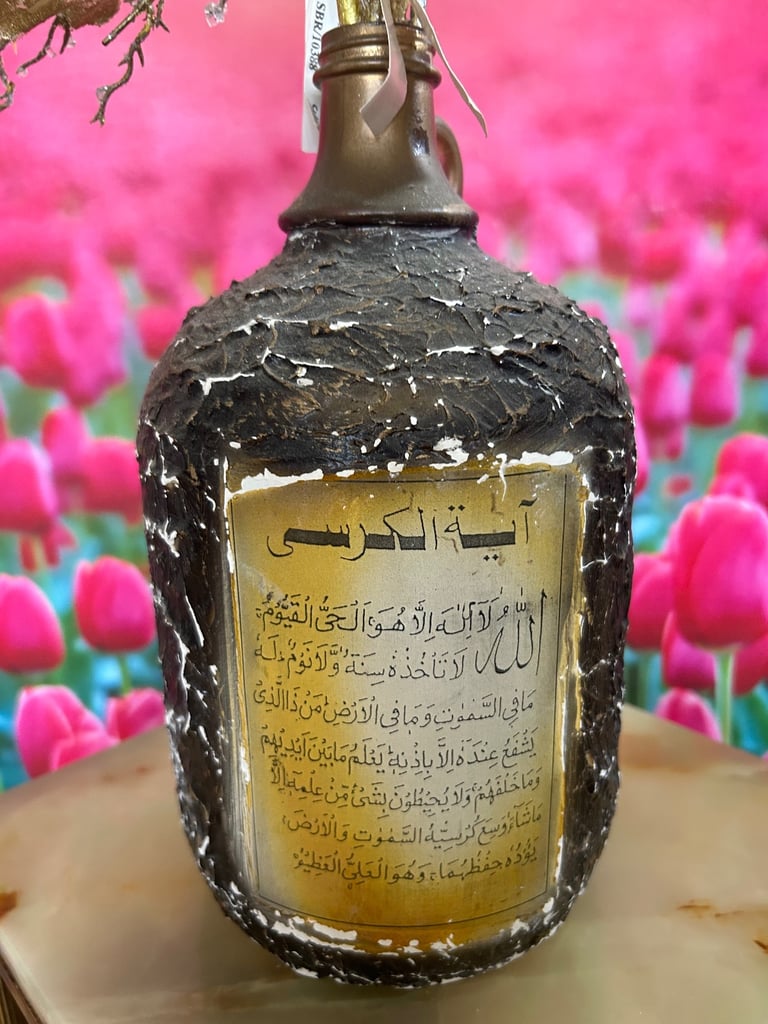 SBR/10388
آية الكرسى
اللهُ لَآ اِلٰهَ اِلَّا هُوَ الۡحَىُّ الۡقَيُّوۡمُ
لَا تَاۡخُذُهٗ سِنَةٌ وَّلَا نَوۡمٌ لَهٗ
مَا فِى السَّمٰوٰتِ وَمَا فِى الۡاَرۡضِ مَنۡ ذَا الَّذِىۡ
يَشۡفَعُ عِنۡدَهٗ اِلَّا بِاِذۡنِهٖ يَعۡلَمُ مَا بَيۡنَ اَيۡدِيۡهِمۡ
وَمَا خَلۡفَهُمۡ وَلَا يُحِيۡطُوۡنَ بِشَىۡءٍ مِّنۡ عِلۡمِهٖۤ اِلَّا
مَاشَآءَ وَسِعَ كُرۡسِيُّهُ السَّمٰوٰتِ وَالۡاَرۡضَ
يَؤُدُهٗ حِفۡظُهُمَا وَهُوَ الۡعَلِىُّ الۡعَظِيۡمُ